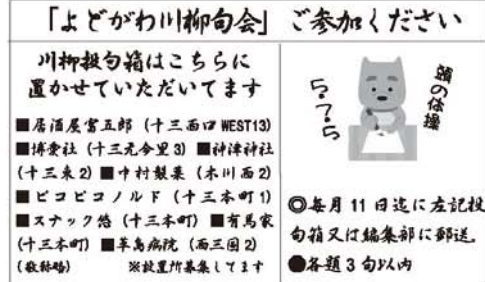 「よどがわ川柳句会」ご参加ください
川柳投句箱はこちらに
置かせていただいてます
■居酒屋富五郎（十三西口WEST13）
■博愛社（十三元今里3）■神津神社
（十三東2）■中村製菓（木川西2）
■ピコピコノルド（十三本町1）
■スナック悠（十三本町）■有馬家
（十三本町）■草島病院（西三国2）
（敬称略）　※設置所募集してます
頭の体操
5.7.5
◎毎月11日迄に左記投
句箱又は編集部に郵送。
●各題3句以内